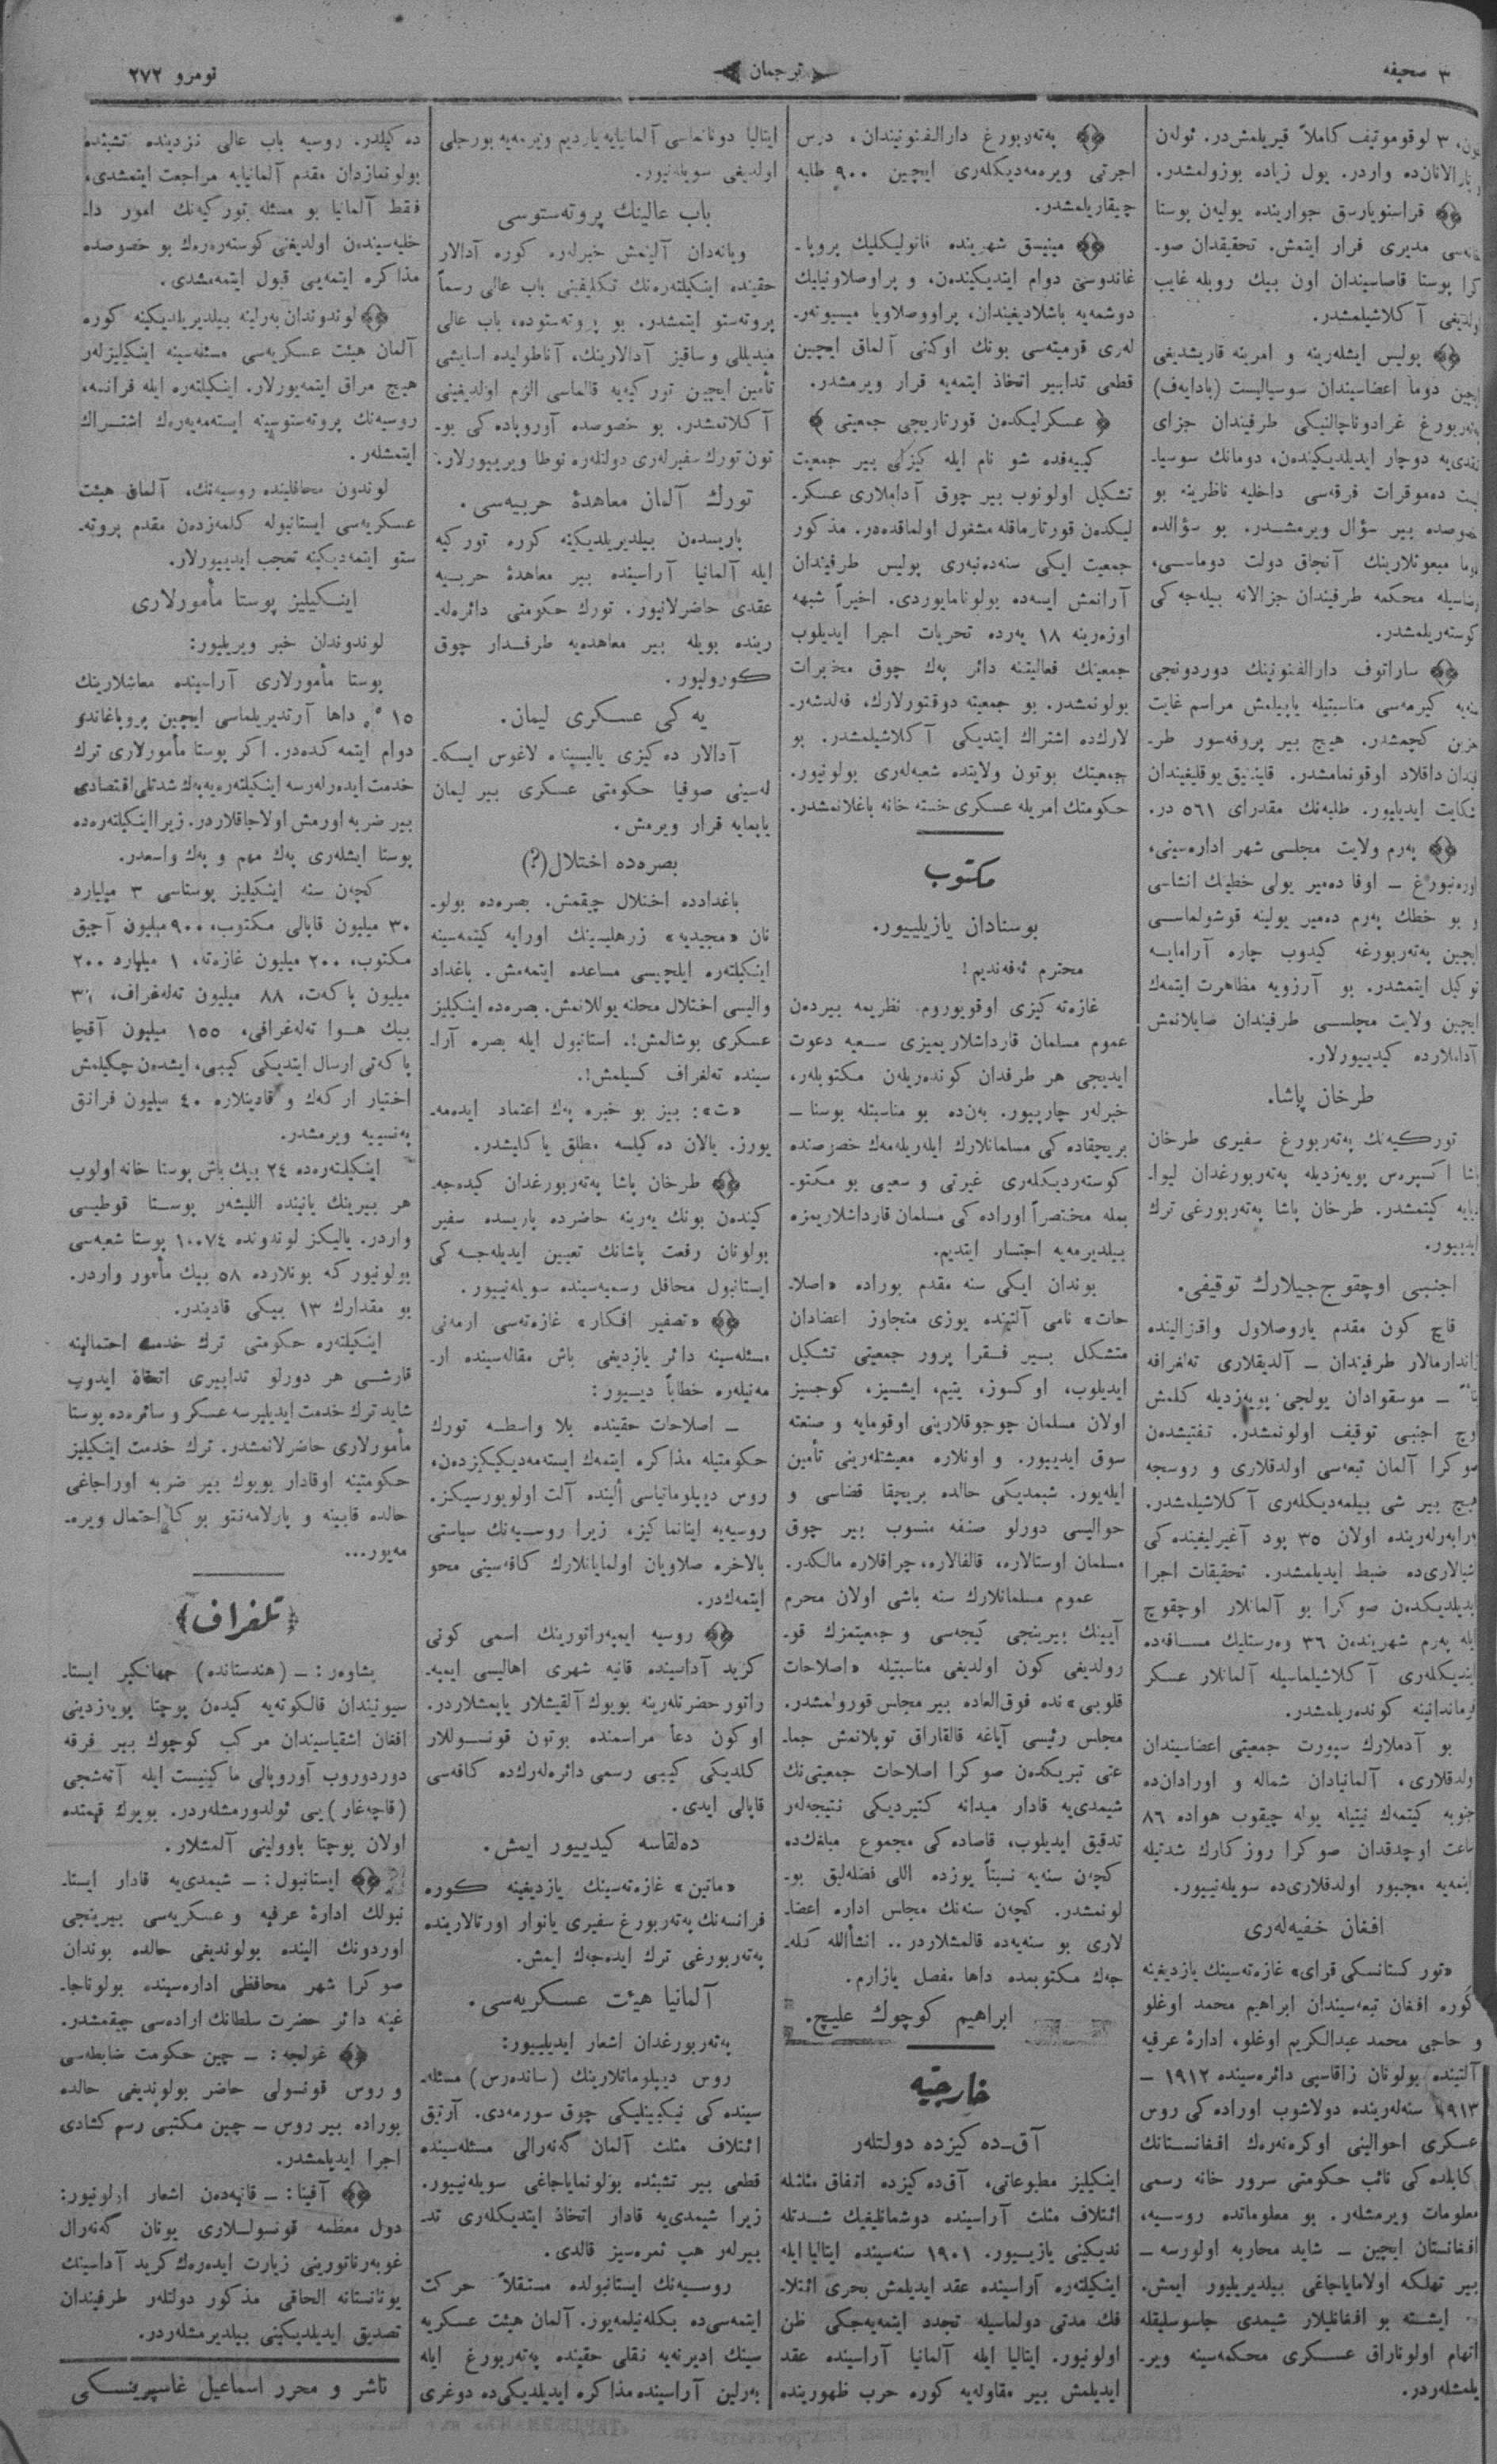 ٣ صحيفه
ترجمان
نومرو ٢٧٢
٣ لوقوموتيف كاملاً قيريلمشدر. ئولەن
يارالانان‌ده واردر. يول زياده بوزولمشدر.
قراسنويارسق جوارينده يوليەن پوستا
مديری فرار ايتمش. تحقيقدان صو-
كرا پوستا قاصاسيندان اون بيك روبله غايب
اولديغی آكلاشيلمشدر.
پوليس ايشلەرينه و امرينه قاريشديغی
ايچين دوما اعضاسيندان سوسياليست (بادايەف)
پەتەربورغ غرادوناچالنيكی طرفيندان جزای
نقدی‌يه دوچار ايديلديكيندەن، دومانك سوسيا-
ليست دەموقرات فرقه‌سی داخليه ناظرينه بو
خصوصده بير سؤال ويرمشدر. بو سؤالده
دوما مبعوثلارينك آنجاق دولت دوماسی،
رضاسيله محكمه طرفيندان جزالانه بيله‌جه‌كی
كوستەريلمشدر.
ساراتوف دارالفنونينك دوردونجی
سنه‌يه كيرمه‌سی مناسبتيله ياپيلمش مراسم غايت
حزين كچمشدر. هيچ بير پروفەسور طر-
فيندان داقلاد اوقونمامشدر. قلينيق يوقلغيندان
شكايت ايديليور. طلبه‌نك مقداری ٥٦١ در.
پەرم ولايت مجلسی شهر اداره‌سينی،
اورەنبورغ – اوفا دەمير يولی خطينك انشاسی
و بو خطك پەرم دەمير يولينه قوشولماسی
ايچين پەتەربورغه كيدوب چاره آرامايه
توكيل ايتمشدر. بو آرزويه مظاهرت ايتمەك
ايچين ولايت مجلسی طرفيندان صايلانمش
آداملارده كيدييورلار.
طرخان پاشا.
توركيه‌نك پەتەربورغ سفيری طرخان
پاشا اكسپرەس پويەزديله پەتەربورغدان ليوا-
ديايه كيتمشدر. طرخان پاشا پەتەربورغی ترك
ايدييور.
اجنبی اوچقوج‌جيلارك توقيفی.
قاچ كون مقدم ياروصلاول واقزالينده
ژاندارمالار طرفيندان – آلديقلاری تەلغرافه
بناءً – موسقوادان يولجی پويەزديله كلمش
اوچ اجنبی توقيف اولونمشدر. تفتيشدەن
صوكرا آلمان تبعه‌سی اولدقلاری و روسجه
هيچ بير شی بيلمەديكلەری آكلاشيلمشدر.
برابەرلەرينده اولان ٣٥ پود آغيرليغنده‌كی
شيالاری‌ده ضبط ايديلمشدر. تحقيقات اجرا
ايديلديكدەن صوكرا بو آلمانلار اوچقوچ
ايله پەرم شهريندەن ٣٦ وەرستليك مسافه‌ده
ايندیكلەری آكلاشيلماسيله آلمانلار عسكر
قومانداننه كوندەريلمشدر.
بو آدملارك سپورت جمعيتی اعضاسيندان
اولدقلاری، آلمانيادان شماله و اورادان‌ده
جنوبه كيتمەك نيتيله يوله چيقوب هواده ٨٦
ساعت اوچدقدان صوكرا روزكارك شدتيله
اينمه‌يه مجبور اولدقلاری‌ده سويلەنييور.
افغان خفيه‌لەری
«توركستانسكی قرای» غازه‌ته‌سينك يازديغينه
كوره افغان تبعه‌سيندان ابراهيم محمد اوغلو
و حاجی محمد عبدالكريم اوغلو، ادارۀ عرفيه
آلتينده بولونان زاقاسپی دائره‌سينده ١٩١٢ –
١٩١٣ سنه‌لەرينده دولاشوب اوراده‌كی روس
عسكری احوالينی اوكرەنەرەك افغانستانك
كابلده‌كی نائب حكومتی سرور خانه رسمی
معلومات ويرمشلەر. بو معلوماتده روسيه،
افغانستان ايچين – شايد محاربه اولورسه –
بير تهلكه اولاماياجاغی بيلديريليور ايمش.
ايشته بو افغانليلار شيمدی جاسوسليقله
اتهام اولوناراق عسكری محكمه‌سينه وير-
يلمشلەردر.
پەتەربورغ دارالفنونيندان، درس
اجرتی ويرەمەديكلەری ايچين ٩٠٠ طلبه
چيقاريلمشدر.
مينيسق شهرينده قاتوليكليك پروپا-
غاندوسی دوام ايتديكيندەن، و پراوصلاونيايك
دوشمه‌يه باشلاديغيندان، پراووصلاويا ميسيونەر-
لەری قوميته‌سی بونك اوكنی آلماق ايچين
قطعی تدابير اتخاذ ايتمه‌يه قرار ويرمشدر.
﴿ عسكرليكدەن قورتاريجی جمعيتی ﴾
كييەفده شو نام ايله كيزلی بير جمعيت
تشكيل اولونوب بير چوق آداملاری عسكر-
ليكدەن قورتارماقله مشغول اولماقده‌در. مذكور
جمعيت ايكی سنه‌دەنبەری پوليس طرفيندان
آرانمش ايسه‌ده بولونامايوردی. اخيراً شبهه
اوزەرينه ١٨ يەرده تحريات اجرا ايديلوب
جمعيتك فعاليتنه دائر پەك چوق مخبرات
بولونمشدر. بو جمعيته دوقتورلارك، فەلدشەر-
لارك‌ده اشتراك ايتديكی آكلاشيلمشدر. بو
جمعيتك بوتون ولايتده شعبه‌لەری بولونيور.
حكومتك امريله عسكری خسته خانه باغلانمشدر.
مكتوب
بوسنادان يازيلييور.
محترم ئەفەنديم!
غازه‌ته‌كيزی اوقويوروم. نظريمه بيردەن
عموم مسلمان قارداشلاريميزی سعيه دعوت
ايديجی هر طرفدان كوندەريلەن مكتوبلەر،
خبرلەر چارپيور. بەن‌ده بو مناسبتله بوسنا –
بريچقاده‌كی مسلمانلارك ايلەريلەمەك خصوصنده
كوستەرديكلەری غيرتی و سعيی بو مكتو-
بمله مختصراً اوراده‌كی مسلمان قارداشلاريمزه
بيلديرمه‌يه اجتسار ايتديم.
بوندان ايكی سنه مقدم بوراده «اصلا-
حات» نامی آلتينده يوزی متجاوز اعضادان
متشكل بير فقرا پرور جمعيتی تشكيل
ايديلوب، اوكسوز، يتيم، ايشسيز، كوجسيز
اولان مسلمان چوجوقلارينی اوقومايه و صنعته
سوق ايدييور. و اونلاره معيشتلەرينی تأمين
ايلەيور. شيمديكی حالده بريچقا قضاسی و
حواليسی دورلو صنفه منسوب بير چوق
مسلمان اوستالاره، قالفالاره، چراقلاره مالكدر.
عموم مسلمانلارك سنه باشی اولان محرم
آيينك بيرينجی كيجه‌سی و جمعيتمزك قو-
رولديغی كون اولديغی مناسبتيله «اصلاحات
قلوبی» نده فوق‌العاده بير مجلس قورولمشدر.
مجلس رئيسی آياغه قالقاراق توپلانمش جما-
عتی تبريكدەن صوكرا اصلاحات جمعيتی‌نك
شيمدی‌يه قادار ميدانه كتيرديكی نتيجه‌لەر
تدقيق ايديلوب، قاصاده‌كی مجموع مبلغك‌ده
كچەن سنه‌يه نسبتاً يوزده اللی فضله‌ليق بو-
لونمشدر. كچەن سنه‌نك مجلس اداره اعضا-
لاری بو سنه‌يه‌ده قالمشلاردر.. انشأالله كله-
جەك مكتوبمده داها مفصل يازارم.
ابراهيم كوچوك عليچ.
خارجيه
آق-ده‌كيزده دولتلەر
اينكيليز مطبوعاتی، آق‌ده‌كيزده اتفاق مثلثله
ائتلاف مثلث آراسينده دوشمانليغيك شدتله
نديكينی يازييور. ١٩٠١ سنه‌سينده ايتاليا ايله
اينكيلتەره آراسينده عقد ايديلمش بحری ائتلا-
فك مدتی دولماسيله تجدد ايتميه‌جكی ظن
اولونيور. ايتاليا ايله آلمانيا آراسينده عقد
ايديلمش بير مقاوله‌يه كوره حرب ظهورينده
ايتاليا دونانماسی آلمانيايه يارديم ويرمه‌يه بورجلی
اولديغی سويلەنيور.
باب عالينك پروتەستوسی
ويانه‌دان آلينمش خبرلەره كوره آدالار
حقينده اينكيلتەره‌نك تكليفينی باب عالی رسماً
پروتەستو ايتمشدر. بو پروتەستوده، باب عالی
ميديللی و ساقيز آدالارينك، آناطوليده اسايشی
تأمين ايچين توركيه‌يه قالماسی الزم اولديغينی
آكلاتمشدر. بو خصوصده آوروپاده‌كی بو-
تون تورك سفيرلەری دولتلەره نوطا ويرييورلار.
تورك آلمان معاهدۀ حربيه‌سی.
پاريسدەن بيلديريلديكينه كوره توركيه
ايله آلمانيا آراسينده بير معاهدۀ حربيه
عقدی حاضرلانيور. تورك حكومتی دائره‌لە-
رينده بويله بير معاهده‌يه طرفدار چوق
كورولیور.
يەكی عسكری ليمان.
آدالار ده‌كيزی ياليسينده لاغوس ايسكە-
له‌سينی صوفيا حكومتی عسكری بير ليمان
ياپمايه قرار ويرمش.
بصره‌ده اختلال (؟)
باغدادده اختلال چيقمش. بصره‌ده بولو-
نان «مجيديه» زرهليسينك اورايه كيتمه‌سينه
اينكيلتەره ايلچيسی مساعده ايتمەمش. باغداد
واليسی اختلال محلنه يوللانمش. بصره‌ده اينكيليز
عسكری بوشالمش!. استانبول ايله بصره آرا-
سينده تەلغراف كسيلمش!.
«ت»: بيز بو خبره پەك اعتماد ايدەمه-
يورز. يالان ده‌كيلسه مطلق ياكليشدر.
طرخان پاشا پەتەربورغدان كيده‌جه-
كيندەن بونك يەرينه حاضرده پاريسده سفير
بولونان رفعت پاشانك تعيين ايديله‌جه‌كی
ايستانبول محافل رسميه‌سينده سويلەنييور.
«تصفير افكار» غازه‌ته‌سی ارمەنی
مسئله‌سينه دائر يازديغی باش مقاله‌سينده ار-
مەنيلەره خطاباً دييور:
– اصلاحات حقينده بلا واسطه تورك
حكومتيله مذاكره ايتمەك ايستەمەديكيكزدەن،
روس ديپلوماتياسی ألينده آلت اولويورسيكز.
روسيه‌يه اينانماكيز، زيرا روسيه‌نك سياستی
بالاخره صلاويان اولمايانلارك كافه‌سينی محو
ايتمەك‌در.
روسيه ايمپەراتورينك اسمی كونی
كريد آداسينده قانيه شهری اهاليسی ايمپە-
راتور حضرتلەرينه بويوك آلقيشلار ياپمشلاردر.
اوكون دعا مراسمنده بوتون قونسوللار
كلديكی كيبی رسمی دائره‌لەرك‌ده كافه‌سی
قاپالی ايدی.
دەلقاسه كيدييور ايمش.
«ماتين» غازه‌ته‌سينك يازديغينه كوره
فرانسه‌نك پەتەربورغ سفيری يانوار اورتالارينده
پەتەربورغی ترك ايده‌جەك ايمش.
آلمانيا هيئت عسكريه‌سی.
پەتەربورغدان اشعار ايديلييور:
روس ديپلوماتلارينك (ساندەرس) مسئلە-
سينده‌كی نيكبينليكی چوق سورمەدی. آرتيق
ائتلاف مثلث آلمان گەنەرالی مسئله‌سينده
قطعی بير تشبثده بولونماياجاغی سويلەنييور.
زيرا شيمدی‌يه قادار اتخاذ ايتديكلەری تد-
بيرلەر هپ ثمره‌سيز قالدی.
روسيه‌نك ايستانبولده مستقلاً حركت
ايتمه‌سی‌ده بكله‌نيلمەيور. آلمان هيئت عسكريه
سينك اديرنه‌يه نقلی حقينده پەتەربورغ ايله
بەرلين آراسينده مذاكره ايديلديكی‌ده دوغری
ده‌كيلدر. روسيه باب عالی نزدينده تشبثده
بولونمازدان مقدم آلمانيايه مراجعت ايتمشدی،
فقط آلمانيا بو مسئله توركيه‌نك امور دا-
خليه‌سيندەن اولديغنی كوستەرەرەك بو خصوصده
مذاكره ايتمه‌يی قبول ايتمەمشدی.
لوندوندان بەرلينه بيلديريلديكينه كوره
آلمان هيئت عسكريه‌سی مسئله‌سينه اينكيليزلەر
هيچ مراق ايتمەيورلار. اينكيلتەره ايله فرانسه،
روسيه‌نك پروتەستوسينه ايستەمەيەرەك اشتراك
ايتمشلەر.
لوندون محافلينده روسيه‌نك، آلمان هيئت
عسكريه‌سی ايستانبوله كلمەزدەن مقدم پروتە-
ستو ايتمەديكينه تعجب ايدييورلار.
اينكيليز پوستا مأمورلاری
لوندوندان خبر ويريليور:
پوستا مأمورلاری آراسينده معاشلارينك
١٥ ٪ داها آرتديريلماسی ايچين پروپاغاندو
دوام ايتمه‌كده‌در. اكر پوستا مأمورلاری ترك
خدمت ايدەرلەرسه اينكيلتەره‌يه پەك شدتلی اقتصادی
بير ضربه اورمش اولاجاقلاردر. زيرا اينكيلتەره‌ده
پوستا ايشلەری پەك مهم و پەك واسعدر.
كچەن سنه اينكيليز پوستاسی ٣ ميليارد
٣٠ ميليون قاپالی مكتوب، ٩٠٠ ميليون آچيق
مكتوب، ٢٠٠ ميليون غازه‌ته، ١ ميليارد ٢٠٠
ميليون پاكەت، ٨٨ ميليون تەلەغراف،
بيك هوا تەلەغرافی، ١٥٥ ميليون آقچا
پاكەتی ارسال ايتديكی كيبی، ايشدەن چكيلمش
اختيار اركەك و قادينلاره ٤٠ ميليون فرانق
پەنسييه ويرمشدر.
اينكيلتەره‌ده ٢٤ بيك باش پوستا خانه اولوب
هر بيرينك يانينده الليشەر پوستا قوطيسی
واردر. ياليكز لوندونده ١٠٠٧٤ پوستا شعبه‌سی
بولونيور كه بونلارده ٥٨ بيك مأمور واردر.
بو مقدارك ١٣ بيكی قاديندر.
اينكيلتەره حكومتی ترك خدمت احتمالينه
قارشی هر دورلو تدابيری اتخاذ ايدوب
شايد ترك خدمت ايديليرسه عسكر و سائره‌ده پوستا
مأمورلاری حاضرلانمشدر. ترك خدمت اينكيليز
حكومتينه اوقادار بويوك بير ضربه اوراجاغی
حالده قابينه و پارلامەنتو بوكا احتمال ويره-
مەيور...
﴿تلغراف﴾
پشاوەر: – (هندستانده) جهانكير ايستا-
سيونيندان قالكوته‌يه كيدەن پوچتا پويەزدينی
افغان اشقياسيندان مركب كوچوك بير فرقه
دوردوروب آوروپالی ماكينيست ايله آتەشجی
(قاچەغار) يی ئولدورمشلەردر. بويوك قيمتده
اولان پوچتا باووليني آلمشلار.
ايستانبول: – شيمدی‌يه قادار ايستا-
نبولك ادارۀ عرفيه و عسكريه‌سی بيرينجی
اوردونك الينده بولونديغی حالده بوندان
صوكرا شهر محافظی اداره‌سينده بولوناجا-
غينه دائر حضرت سلطانك اراده‌سی چيقمشدر.
غولجه: – چين حكومت ضابطه‌سی
و روس قونسولی حاضر بولونديغی حالده
بوراده بير روس – چين مكتبی رسم كشادی
اجرا ايديلمشدر.
آفينا: – قانيه‌دەن اشعار اولونيور:
دول معظمه قونسوللاری يونان گەنەرال
غوبەرناتورينی زيارت ايدەرەك كريد آداسينك
يونانستانه الحاقی مذكور دولتلەر طرفيندان
تصديق ايديلديكينی بيلديرمشلەردر.
ناشر و محرر اسماعيل غاسپرينسكی